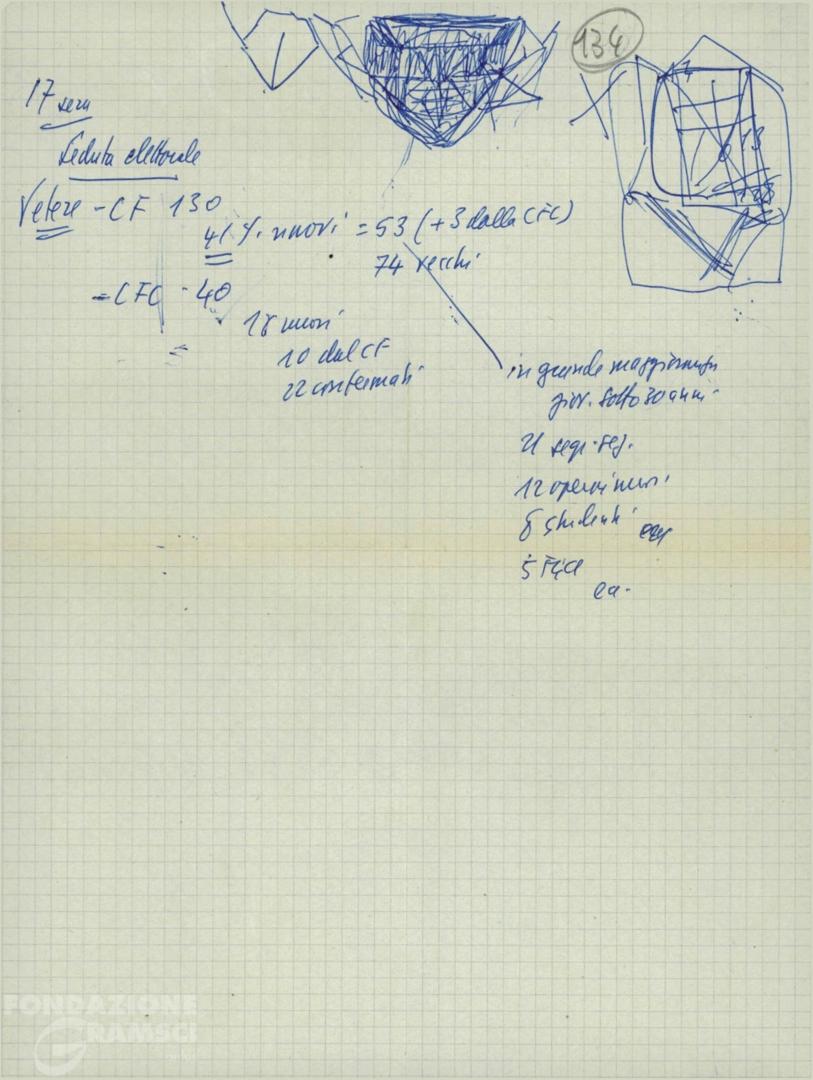 134
17 sera
Seduta elettorale
Vetere - CF 130
41 % nuovi = 53 (+3 dalla CFC)
74 vecchi
= CFC - 40
18 nuovi
10 dal CF
22 confermati
in grande maggioranza
giov. sotto 30 anni -
21 segr. sez.
12 operai nuovi
8 studenti
5 FGCI
17
13
FONDAZIONE
GRAMSCI